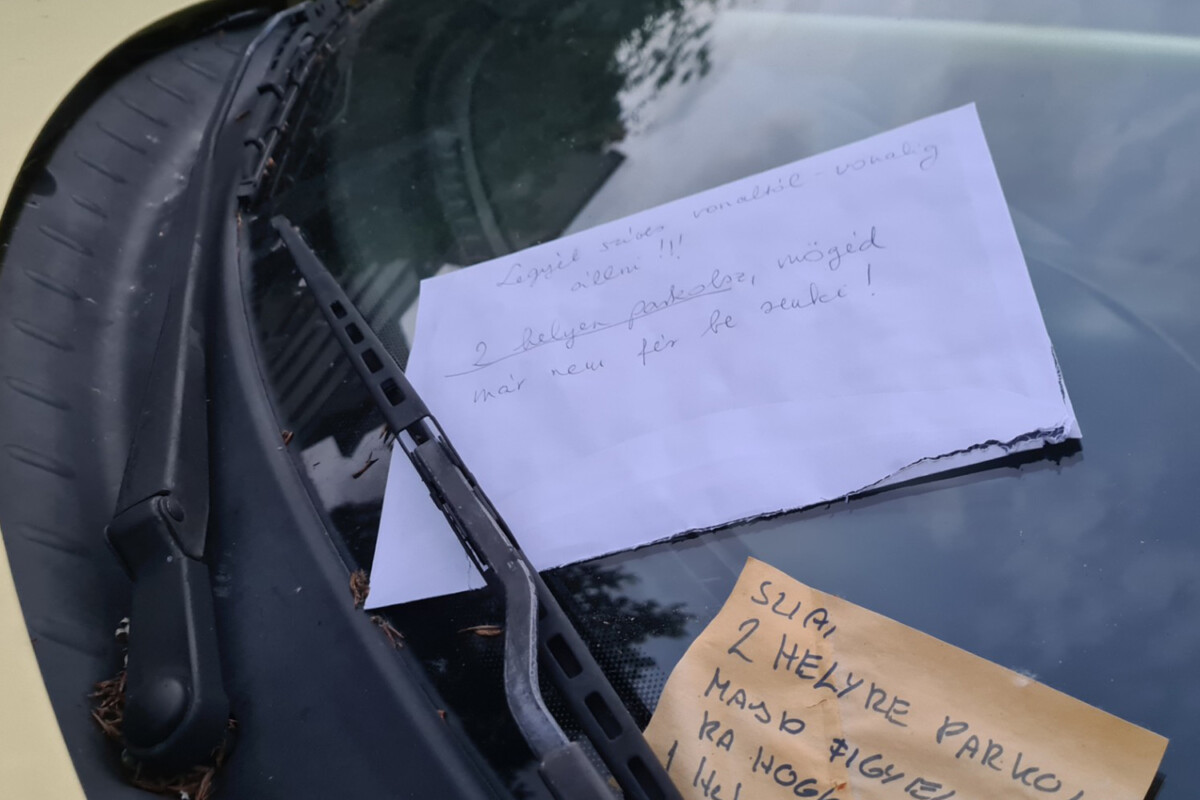 Legyél szíves vonaltól-vonalig
állni!!!
2 helyen parkolsz, mögéd
már nem fér be senki!
SZIA,
2 HELYRE PARKOL
MAJD FIGYEL
RA HOGY
1 HEL